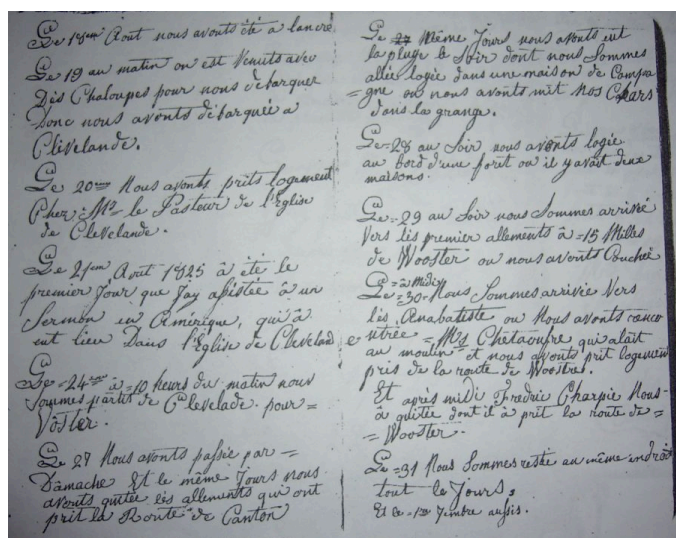 Le 18em Aout nous avonts été a lancre
Le 19 au matin on est Venuts avec
Dès Chaloupes pour nous debarquer
Donc nous avonts débarquée a
Clevelande.
Le 20em Nous avonts prits logement
Chez Mr le Pasteur de l'Eglise
de Clevelande.
Le 21em Aout 1825 â éte le
premier Jour que Jay assistée â un
Sermon en Amérique, qui â
eut lieu Dans l'Eglise de Cleveland
Le 24em â 10 heurs du matin nous
Sommes partit de Clevelade pour =
Voster.
Le 27 Nous avonts passée par =
Damache Et le même Jours nous
avonts quitée lès allements qui ont
prit la Route de Canton
Le même Jours nous avonts eut
la pluye le Soir dont nous Sommes
allée logie dans une maison de Campa
= gne ou nous avonts mit nos Chars
dans la grange.
Le = 28 au Soir nous avonts logie
au bord d'une foret ou il y avait deux
maisons.
Le = 29 au Soir nous Sommes arrivée
Vers lès premier allements â = 15 Milles
de Wooster ou nous avonts Couchée
= â Midi
Le = 30 = Nous Sommes arrivée Vers
lès Anabatiste ou Nous avonts renco
ntrée = Mrs qui alait
au moulin et nous avonts prit logement
pris de la route de Wooster.
Et après midi Fredric Charpie Nous
â quitée dont il â prit la route de =
= Wooster.
Le = 31 Nous Sommes restée au même endroit
tout le Jours,
Et le 1er 7embre aussis.